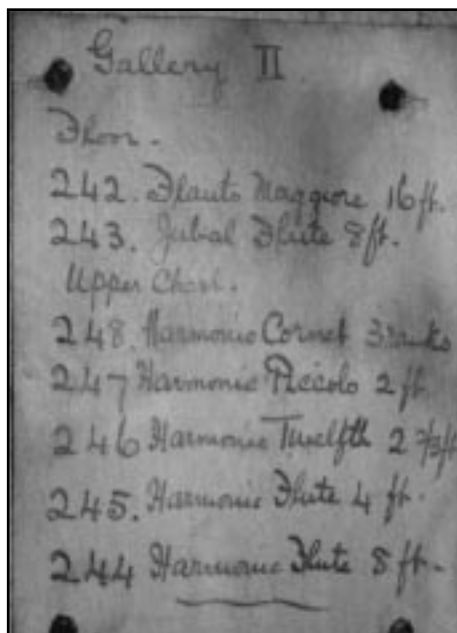 Gallery II
Floor.
242. Flauto Maggiore 16 ft.
243. Jubal Flute 8 ft.
Upper Chest.
248. Harmonic Cornet 3 ranks
247 Harmonic Piccolo 2 ft
246 Harmonic Twelfth 2 2/3 ft
245. Harmonic Flute 4 ft.
244 Harmonic Flute 8 ft.